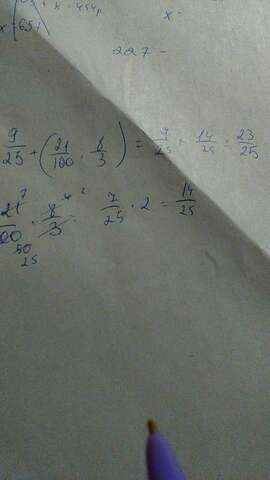 x = 454,
x = 651
x =
227 -
9/25 + (21/100 · 8/3) = 9/25 + 14/25 = 23/25
21/100 · 8/3 = 7/25 · 2 = 14/25
7 4 2
50
25